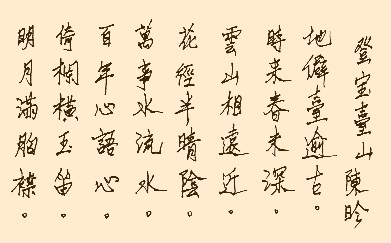 登宝臺山 陳昤
地僻臺逾古。
時來春未深。
雲山相遠近。
花經半晴陰。
萬事水流水。
百年心語心。
倚欄橫玉笛。
明月滿胸襟。